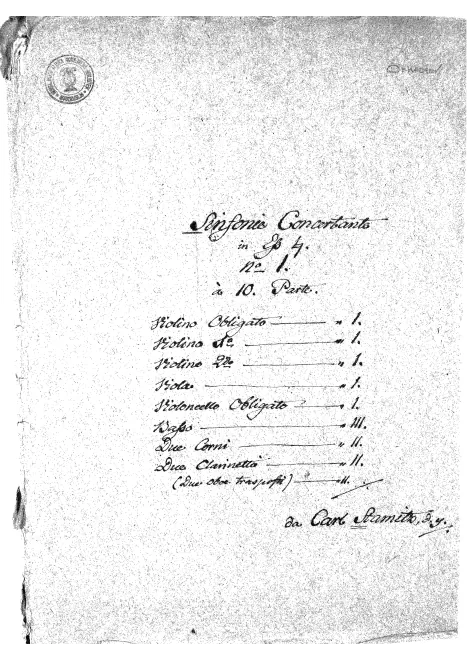 Sinfonie Concertante
in Eß 4.
No 1.
à 10. Parte.
Violino Obligato — " 1.
Violino 1mo — " 1.
Violino 2do — " 1.
Viola — " 1.
Violoncello Obligato — " 1.
Basso — " III.
Due Corni — " II.
Due Clarinetti — " II.
(Due oboe trasposti) — " II.
da Carl Stamitz,